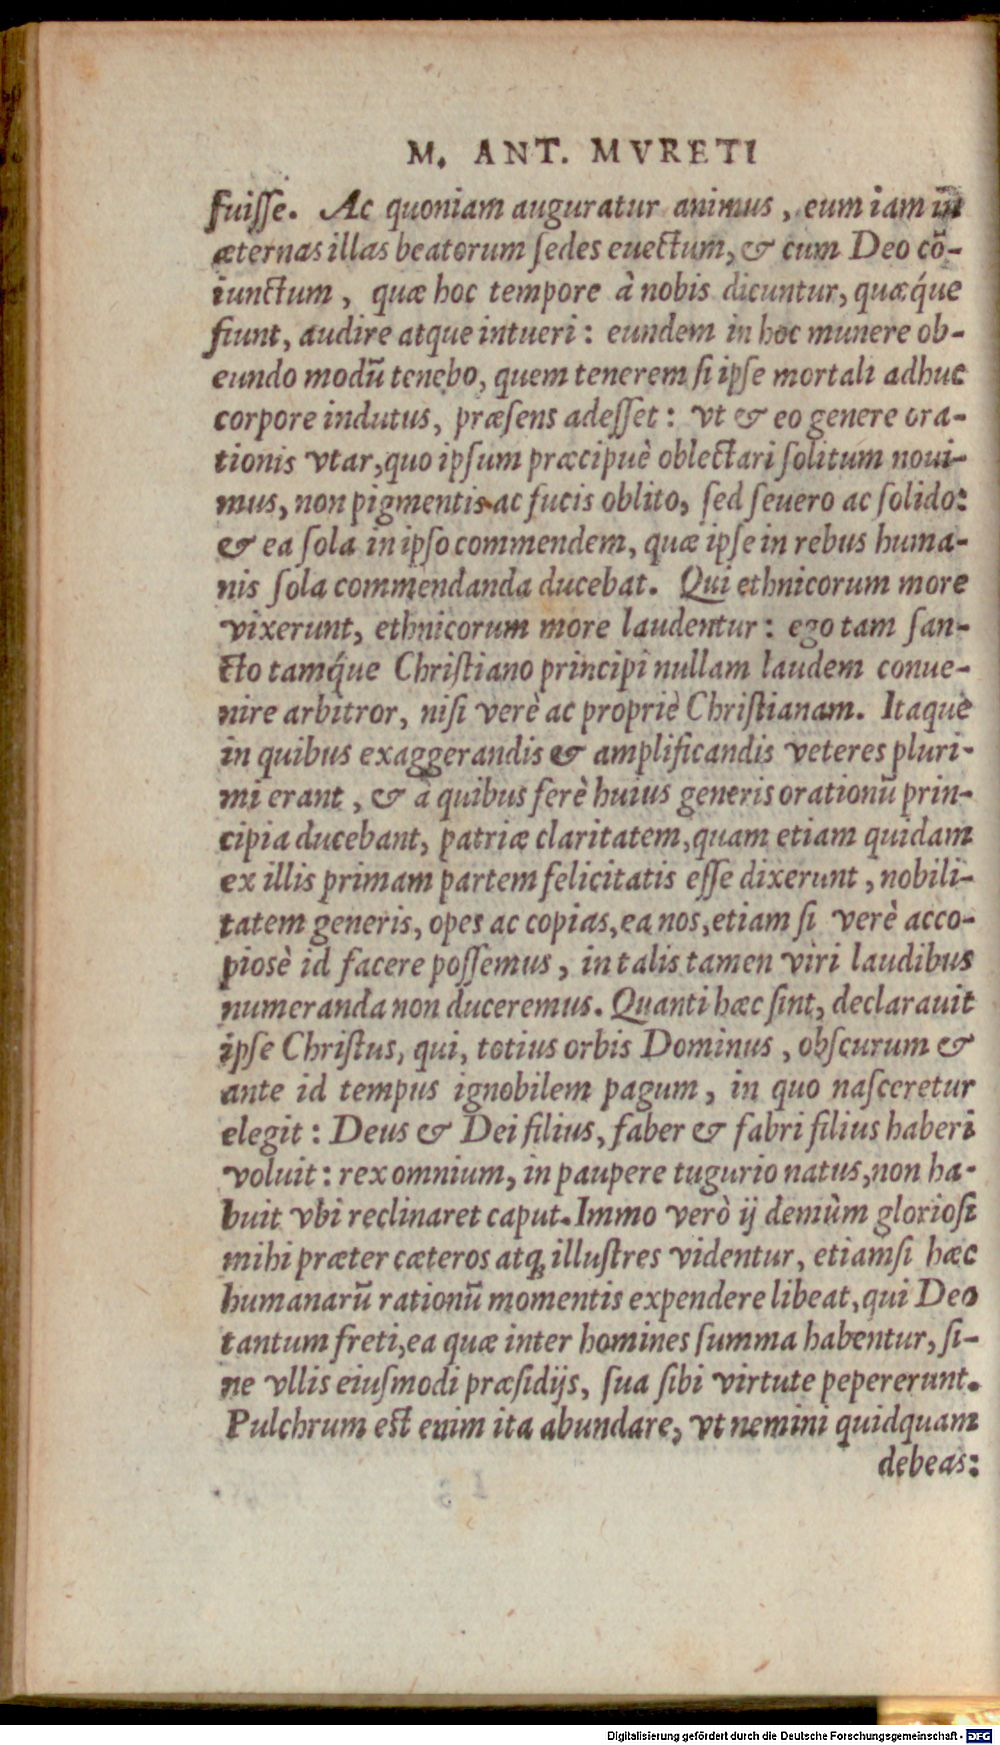 M. ANT. MVRETI
fuiſſe. Ac quoniam auguratur animus, eum iam in
æternas illas beatorum ſedes euectum, & cum Deo cō-
iunctum, quæ hoc tempore à nobis dicuntur, quæq́ue
fiunt, audire atque intueri: eundem in hoc munere ob-
eundo modū tenebo, quem tenerem ſi ipſe mortali adhuc
corpore indutus, præſens adeſſet: vt & eo genere ora-
tionis vtar, quo ipſum præcipuè oblectari ſolitum noui-
mus, non pigmentis ac fucis oblito, ſed ſeuero ac ſolido:
& ea ſola in ipſo commendem, quæ ipſe in rebus huma-
nis ſola commendanda ducebat. Qui ethnicorum more
vixerunt, ethnicorum more laudentur: ego tam ſan-
cto tamq́ue Chriſtiano principi nullam laudem conue-
nire arbitror, niſi verè ac propriè Chriſtianam. Itaque
in quibus exaggerandis & amplificandis veteres pluri-
mi erant, & à quibus ferè huius generis orationū prin-
cipia ducebant, patriæ claritatem, quam etiam quidam
ex illis primam partem felicitatis eſſe dixerunt, nobili-
tatem generis, opes ac copias, ea nos, etiam ſi verè acco-
pioſè id facere poſſemus, in talis tamen viri laudibus
numeranda non duceremus. Quanti hæc ſint, declarauit
ipſe Chriſtus, qui, totius orbis Dominus, obſcurum &
ante id tempus ignobilem pagum, in quo naſceretur
elegit: Deus & Dei filius, faber & fabri filius haberi
voluit: rex omnium, in paupere tugurio natus, non ha-
buit vbi reclinaret caput. Immo verò ij demùm glorioſi
mihi præter cæteros atq; illuſtres videntur, etiamſi hæc
humanarū rationū momentis expendere libeat, qui Deo
tantum freti, ea quæ inter homines ſumma habentur, ſi-
ne vllis eiuſmodi præſidijs, ſua ſibi virtute pepererunt.
Pulchrum eſt enim ita abundare, vt nemini quidquam
debeas:
Digitalisierung gefördert durch die Deutsche Forschungsgemeinschaft - DFG